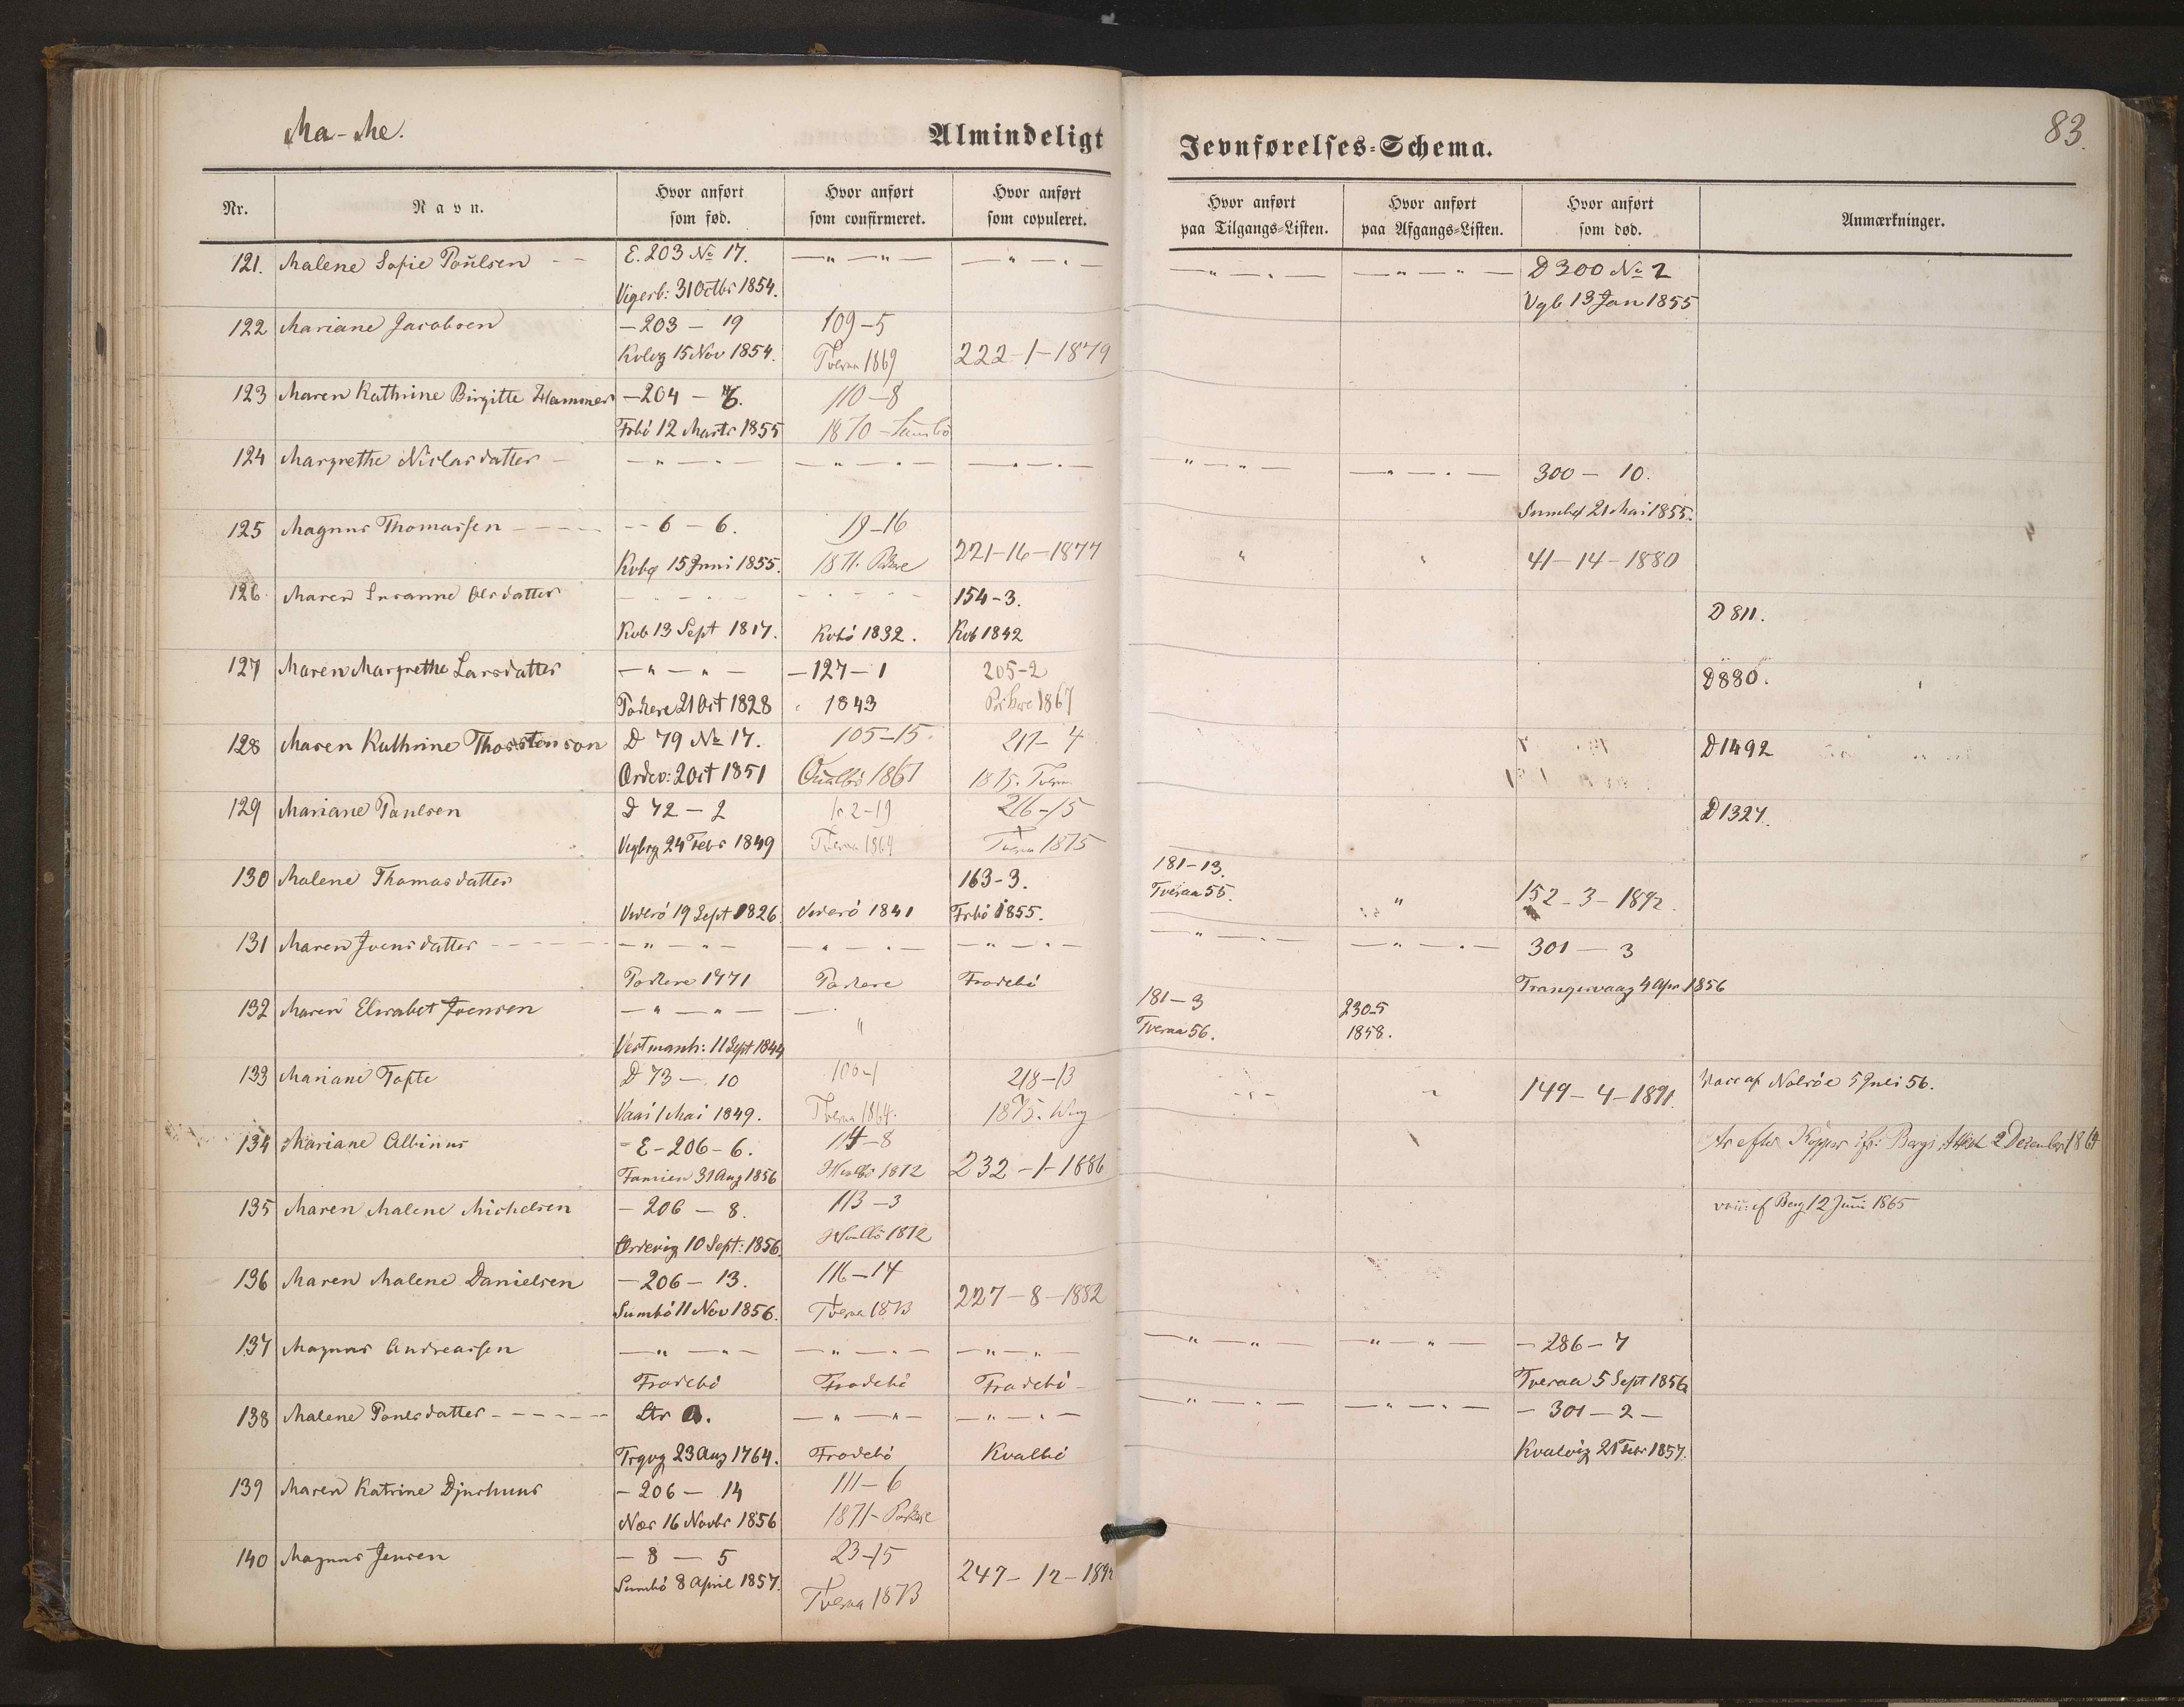 Ma-Me.
Almindeligt
Jevnførelses-Schema.
83.
Nr.
Navn.
Hvor anført som fød.
Hvor anført som confirmeret.
Hvor anført som copuleret.
Hvor anført paa Tilgangs-Listen.
Hvor anført paa Afgangs-Listen.
Hvor anført som død.
Anmærkninger.
121. Malene Sofie Poulsen - - E. 203 No 17. — " — " — — " — " — — " — " — — " — " — D 300 No 2
Vigerb: 31 Octbr 1854. Vgb 13 Jan 1855
122 Mariane Jacobsen — 203 — 19 109-5
Kvlvg 15 Nov 1854. Tveraa 1869 222-1-1879
123 Maren Kathrine Birgitte Hammer — 204 — 6. 110-8
Frbö 12 Marts 1855 1870 - Sumbö
124 Margrethe Niclasdatter — — " — " — — " — " — — " — " — " — " — — " — " — 300 — 10.
Sumbø 21 Mai 1855.
125 Magnus Thomassen - - - - -- 6 - 6. 19-16
Kvbø 15 Juni 1855. 1871. Porkere 221-16-1877 " " 41-14-1880
126 Maren Susanne Olsdatter - - - - - - - - 154-3. D 811.
Kvb 13 Sept 1817. Kvbö 1832. Kvb 1842
127 Maren Margrethe Larsdatter — " — " — — 127 — 1 205-2 D 880.
Porkere 21 Oct 1828 1843 Porkere 1867
128 Maren Kathrine Thorstenson D 79 No 17. 105-15. 217-4 D 1492
Ordev: 2 Oct 1851 Qualbö 1867 1875. Tveraa
129 Mariane Poulsen D 72 — 2 102-19 216-15 D 1327.
Vgbrg 24 Febr 1849 Tveraa 1864 Tveraa 1875
130 Malene Thomasdatter 163-3. 181-13.
Viderö 19 Sept 1826 Viderö 1841 Frbö 1855. Tveraa 55. " 152-3-1892.
131 Maren Joensdatter - - - - — " — " — — " — " — — " — " — — " — " — — " — " — 301 — 3
Porkere 1771 Porkere Frodebö Trangisvaag 4 Apr 1856
132 Maren Elisabet Joensen — " — " — — " 181-3 230-5
Vestmanh: 11 Sept 1844 Tveraa 56. 1858.
133 Mariane Tofte D 73 — 10 100-1 218-13 - " - " 149-4-1891. Vacc af Nolsöe 5 Juli 56.
Vaai 1 Mai 1849. Tveraa 1864. 1875. Waag
134 Mariane Albinus - E - 206 - 6. 114-8 Ar efter Kopper if: Bergs Attest 2 December 1864
Famien 31 Aug 1856 Hvalbö 1872 232-1-1886
135 Maren Malene Michelsen — 206 — 8. 113-3 Berg 12 Juni 1865
Ordevig 10 Sept: 1856. Hvalbö 1872
136 Maren Malene Danielsen — 206 — 13. 116-14
Sumbö 11 Nov 1856. Tveraa 1873 227-8-1882
137 Magnus Andreassen — " — " — — " — " — — " — " — — " — " — — " — " — — 286 — 7
Frodebö Frodebö Frodebö Tveraa 5 Sept 1856
138 Malene Poulsdatter - - - - - Ltr A. — " — " — — " — " — — " — " — — " — " — — 301 — 2 —
Trgvg 23 Aug 1764. Frodebö Kvalbö Kvalvig 21 Febr 1857.
139 Maren Katrine Djurhuus — 206 — 14 111-6
Næs 16 Novbr 1856 1871 - Porkere
140 Magnus Jensen — 8 — 5 23-15
Sumbö 8 April 1857. Tveraa 1873 247-12-1892